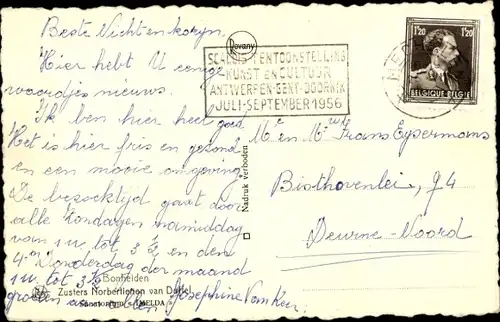 Beste Nichten kozyn.
Hier hebt U eenige
woordjes nieuws.
Ik ben hier heel goed
Het is hier fris en gezond
en een mooie omgeving
De bezoektijd gaat door
alle zondagen namiddag
van 1 u. tot 3 ½ en den
4e donderdag der maand
1 u. tot 3 ½
groeten aan allen Josephine Van Keer
Bonheiden
Zusters Norbertienen van Duffel
Sanatorium « IMELDA »
Dovany
SCALDIS TENTOONSTELLING
KUNST EN CULTUUR
ANTWERPEN-GENT-DOORNIK
JULI-SEPTEMBER 1956
1F20 1F20
BELGIQUE-BELGIE
Nadruk verboden
Mr en Mw Frans Eypermans
Bisthovenlei, 94
Deurne-Noord